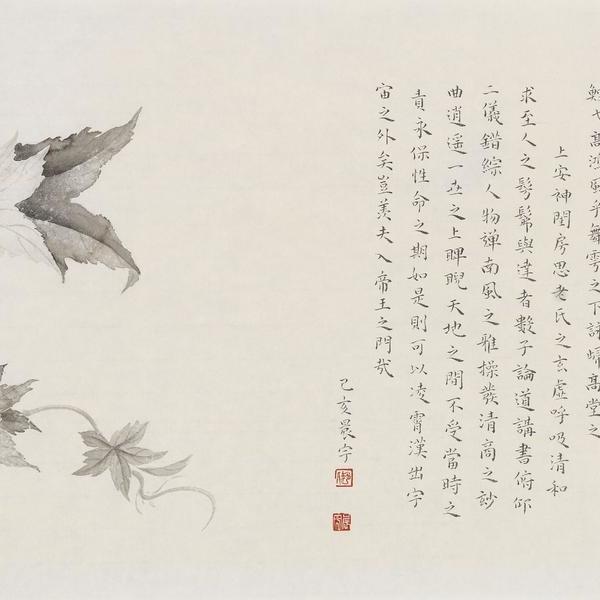 鯉弋髙鴻風乎舞雩之下詠歸髙堂之
上安神閨房思老氏之玄虛呼吸清和
求至人之髣髴與達者數子論道講書俯仰
二儀錯綜人物彈南風之雅操發清商之妙
曲逍遥一世之上睥睨天地之間不受當時之
責永保性命之期如是則可以凌霄漢出宇
宙之外矣豈羨夫入帝王之門哉
己亥晨宇